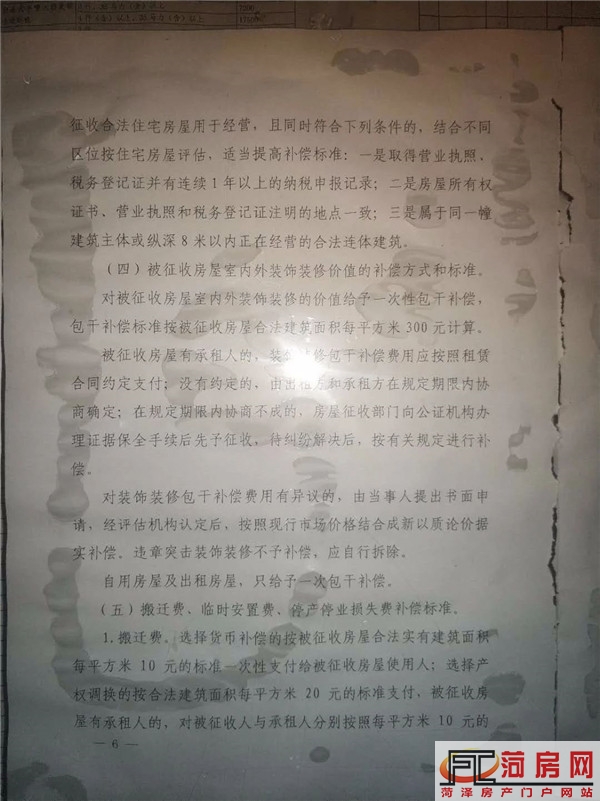 征收合法住宅房屋用于经营，且同时符合下列条件的，结合不同
区位按住宅房屋评估，适当提高补偿标准：一是取得营业执照，
税务登记证并有连续1年以上的纳税申报记录；二是房屋所有权
证书、营业执照和税务登记证注明的地点一致；三是属于同一幢
建筑主体或纵深8米以内正在经营的合法连体建筑。
（四）被征收房屋室内外装饰装修价值的补偿方式和标准。
对被征收房屋室内外装饰装修的价值给予一次性包干补偿，
包干补偿标准按被征收房屋合法建筑面积每平方米300元计算。
被征收房屋有承租人的，装饰装修包干补偿费用应按照租赁
合同约定支付；没有约定的，由出租方和承租方在规定期限内协
商确定；在规定期限内协商不成的，房屋征收部门向公证机构办
理证据保全手续后先予征收，待纠纷解决后，按有关规定进行补
偿。
对装饰装修包干补偿费用有异议的，由当事人提出书面申
请，经评估机构认定后，按照现行市场价格结合成新以质论价据
实补偿。违章突击装饰装修不予补偿，应自行拆除。
自用房屋及出租房屋，只给予一次包干补偿。
（五）搬迁费、临时安置费、停产停业损失费补偿标准。
1.搬迁费。选择货币补偿的按被征收房屋合法实有建筑面积
每平方米 10 元的标准一次性支付给被征收房屋使用人；选择产
权调换的按合法建筑面积每平方米 20 元的标准支付，被征收房
屋有承租人的，对被征收人与承租人分别按照每平方米 10 元的
— 6 —
FC 菏房网
菏泽房产门户网站